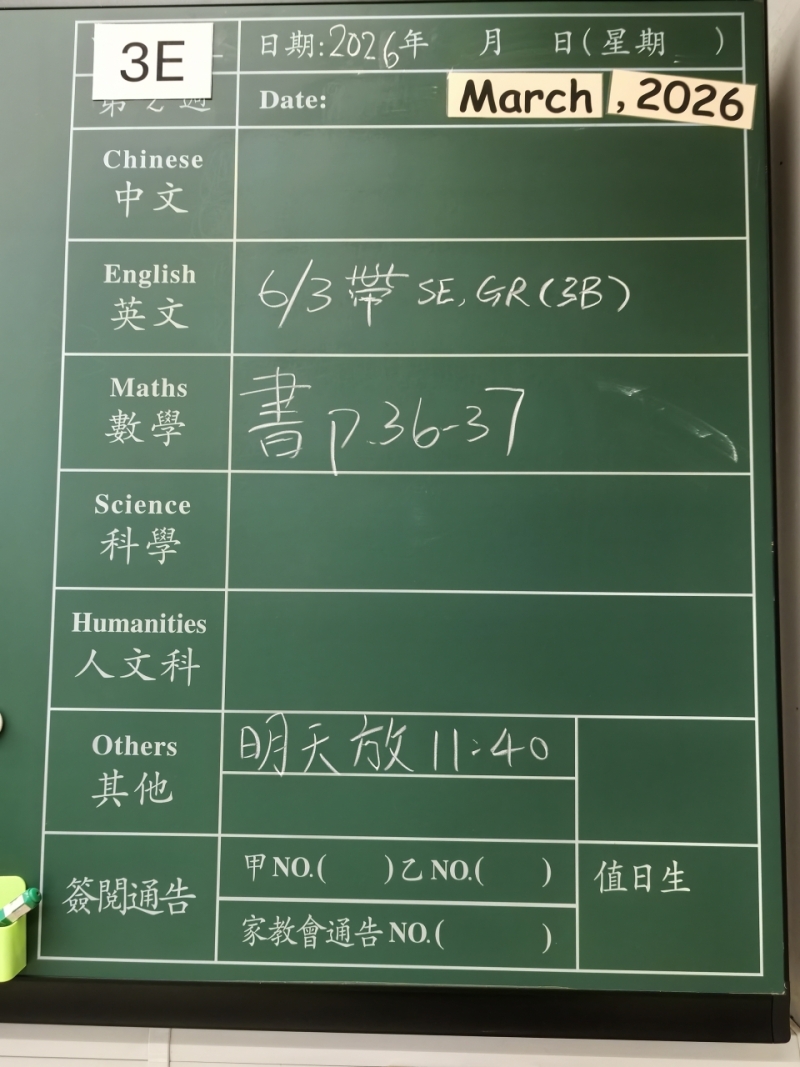 3E
日期:2026年 月 日(星期 )
第2週
Date: March, 2026
Chinese
中文
English
英文
6/3 帶 SE, GR(3B)
Maths
數學
書 p.36-37
Science
科學
Humanities
人文科
Others
其他
明天放 11:40
簽閱通告
甲NO.( )乙NO.( )
家教會通告NO.( )
值日生